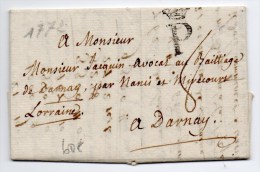 177
P
A Monsieur
Monsieur Jacquin Avocat au Bailliage
de Darnay, par Nancis et Mirecourt
Lorraine
8
A Darnay
60€